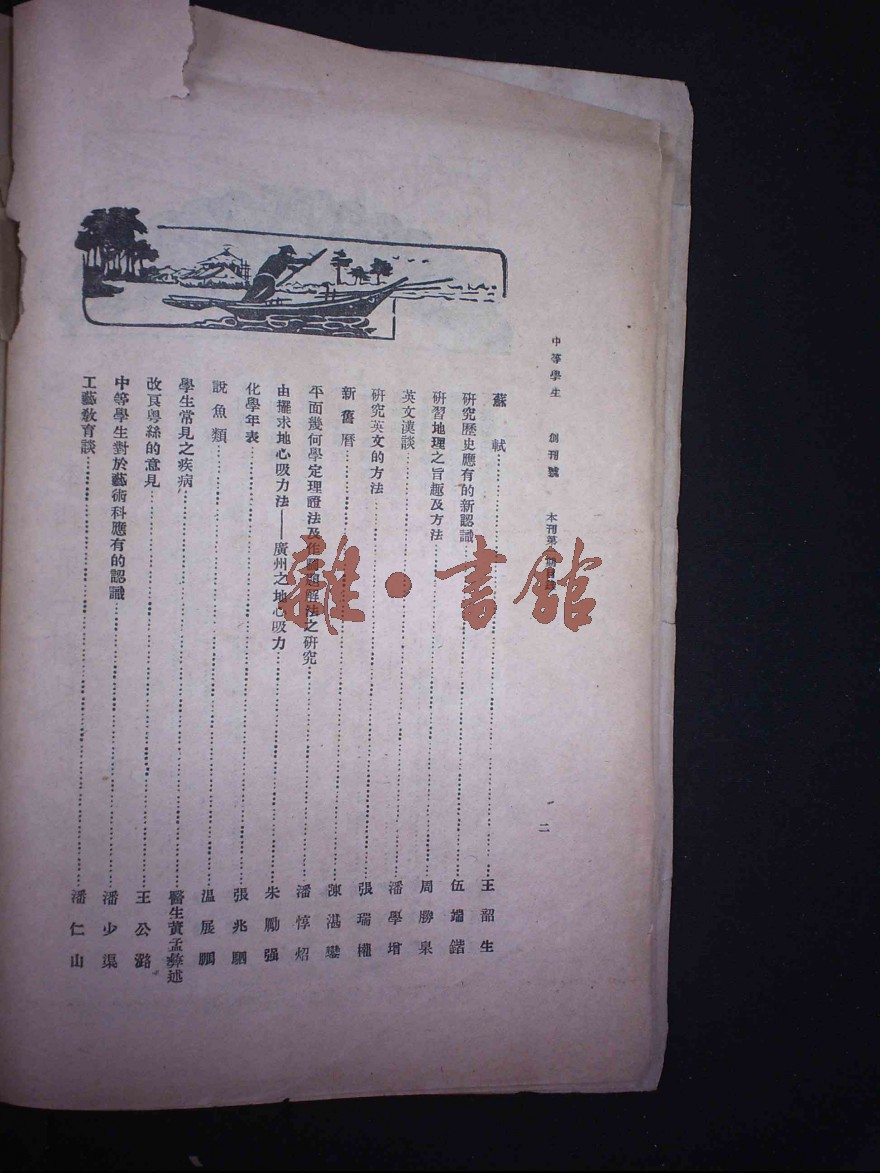 中等學生 創刊號 本刊第一期目錄 二
蘇軾……王韶生
研究歷史應有的新認識……伍端鍇
研習地理之旨趣及方法……周勝皋
英文漢談……潘學增
研究英文的方法……張瑞權
新舊曆……陳湛鑾
平面幾何學定理證法及作圖題解法之研究……潘惇炤
由擺求地心吸力法——廣州之地心吸力……朱勵强
化學年表……張兆駟
說魚類……温展鵬
學生常見之疾病……醫生黃孟彜述
改良粵絲的意見……王公潞
中等學生對於藝術科應有的認識……潘少渠
工藝敎育談……潘仁山
雜·書舘